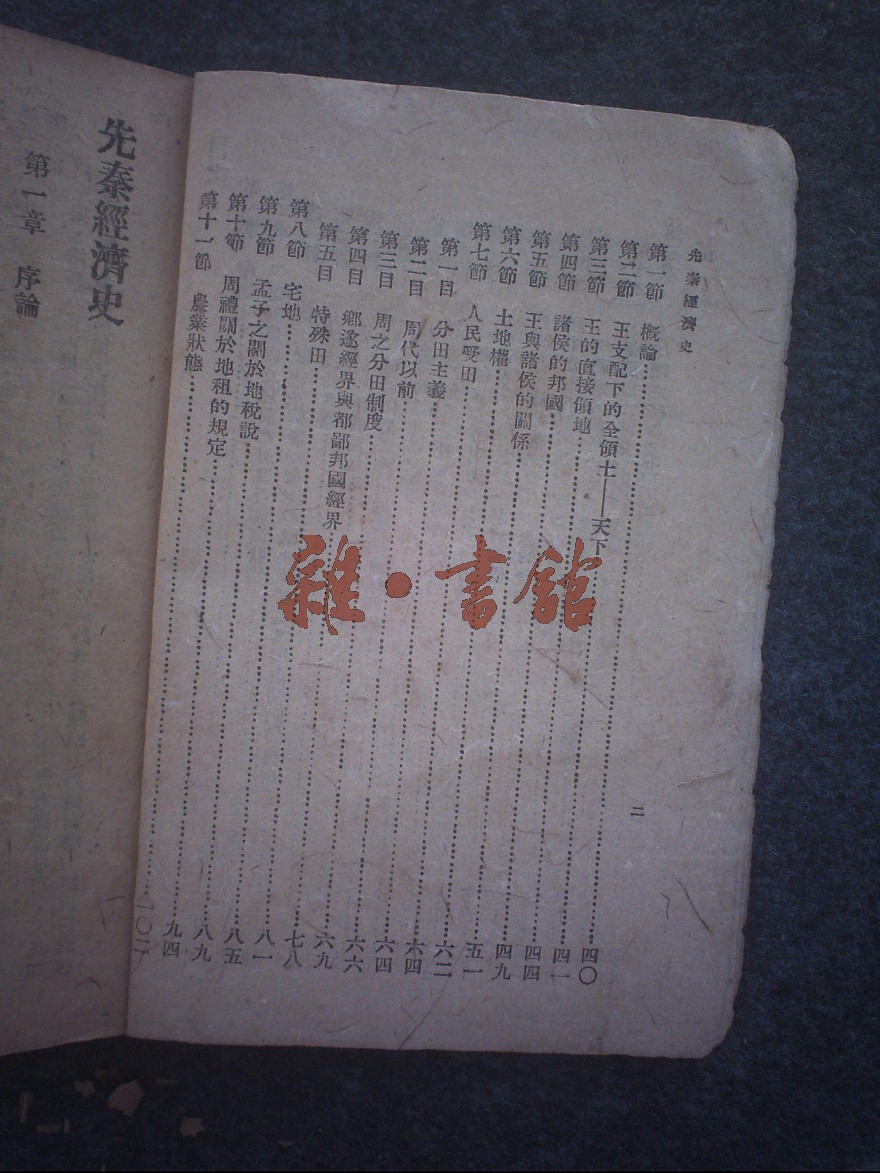 先秦經濟史
二
第一節 概論……四〇
第二節 王支配下的全領土——天下……四一
第三節 王的直接領地……四四
第四節 諸侯的邦國……四九
第五節 王與諸侯的關係……五一
第六節 土地權……六二
第七節 人民受田……六四
第一目 分田主義……六四
第二目 周代以前……六六
第三目 周之分田制度……六九
第四目 鄉遂經界與都鄙邦國經界……七八
第五目 特殊田……八一
第八節 宅地……八五
第九節 孟子之關於地稅說……八九
第十節 周禮關於地租的規定……九四
第十一節 農業狀態……一〇二
先秦經濟史
第一章 序論
雜·書館